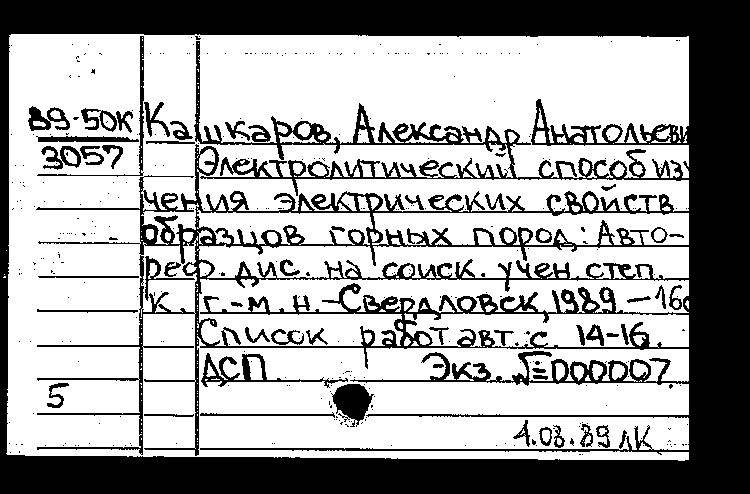 89-50К
3057
Кашкаров, Александр Анатольеви
Электролитический способ изу
чения электрических свойств
образцов горных пород: Авто-
реф. дис. на соиск. учен. степ.
к. г.-м. н. - Свердловск, 1989. - 16с
Список работ авт.: с. 14-16.
ДСП. Экз. № 000007.
5
4.08.89 лК